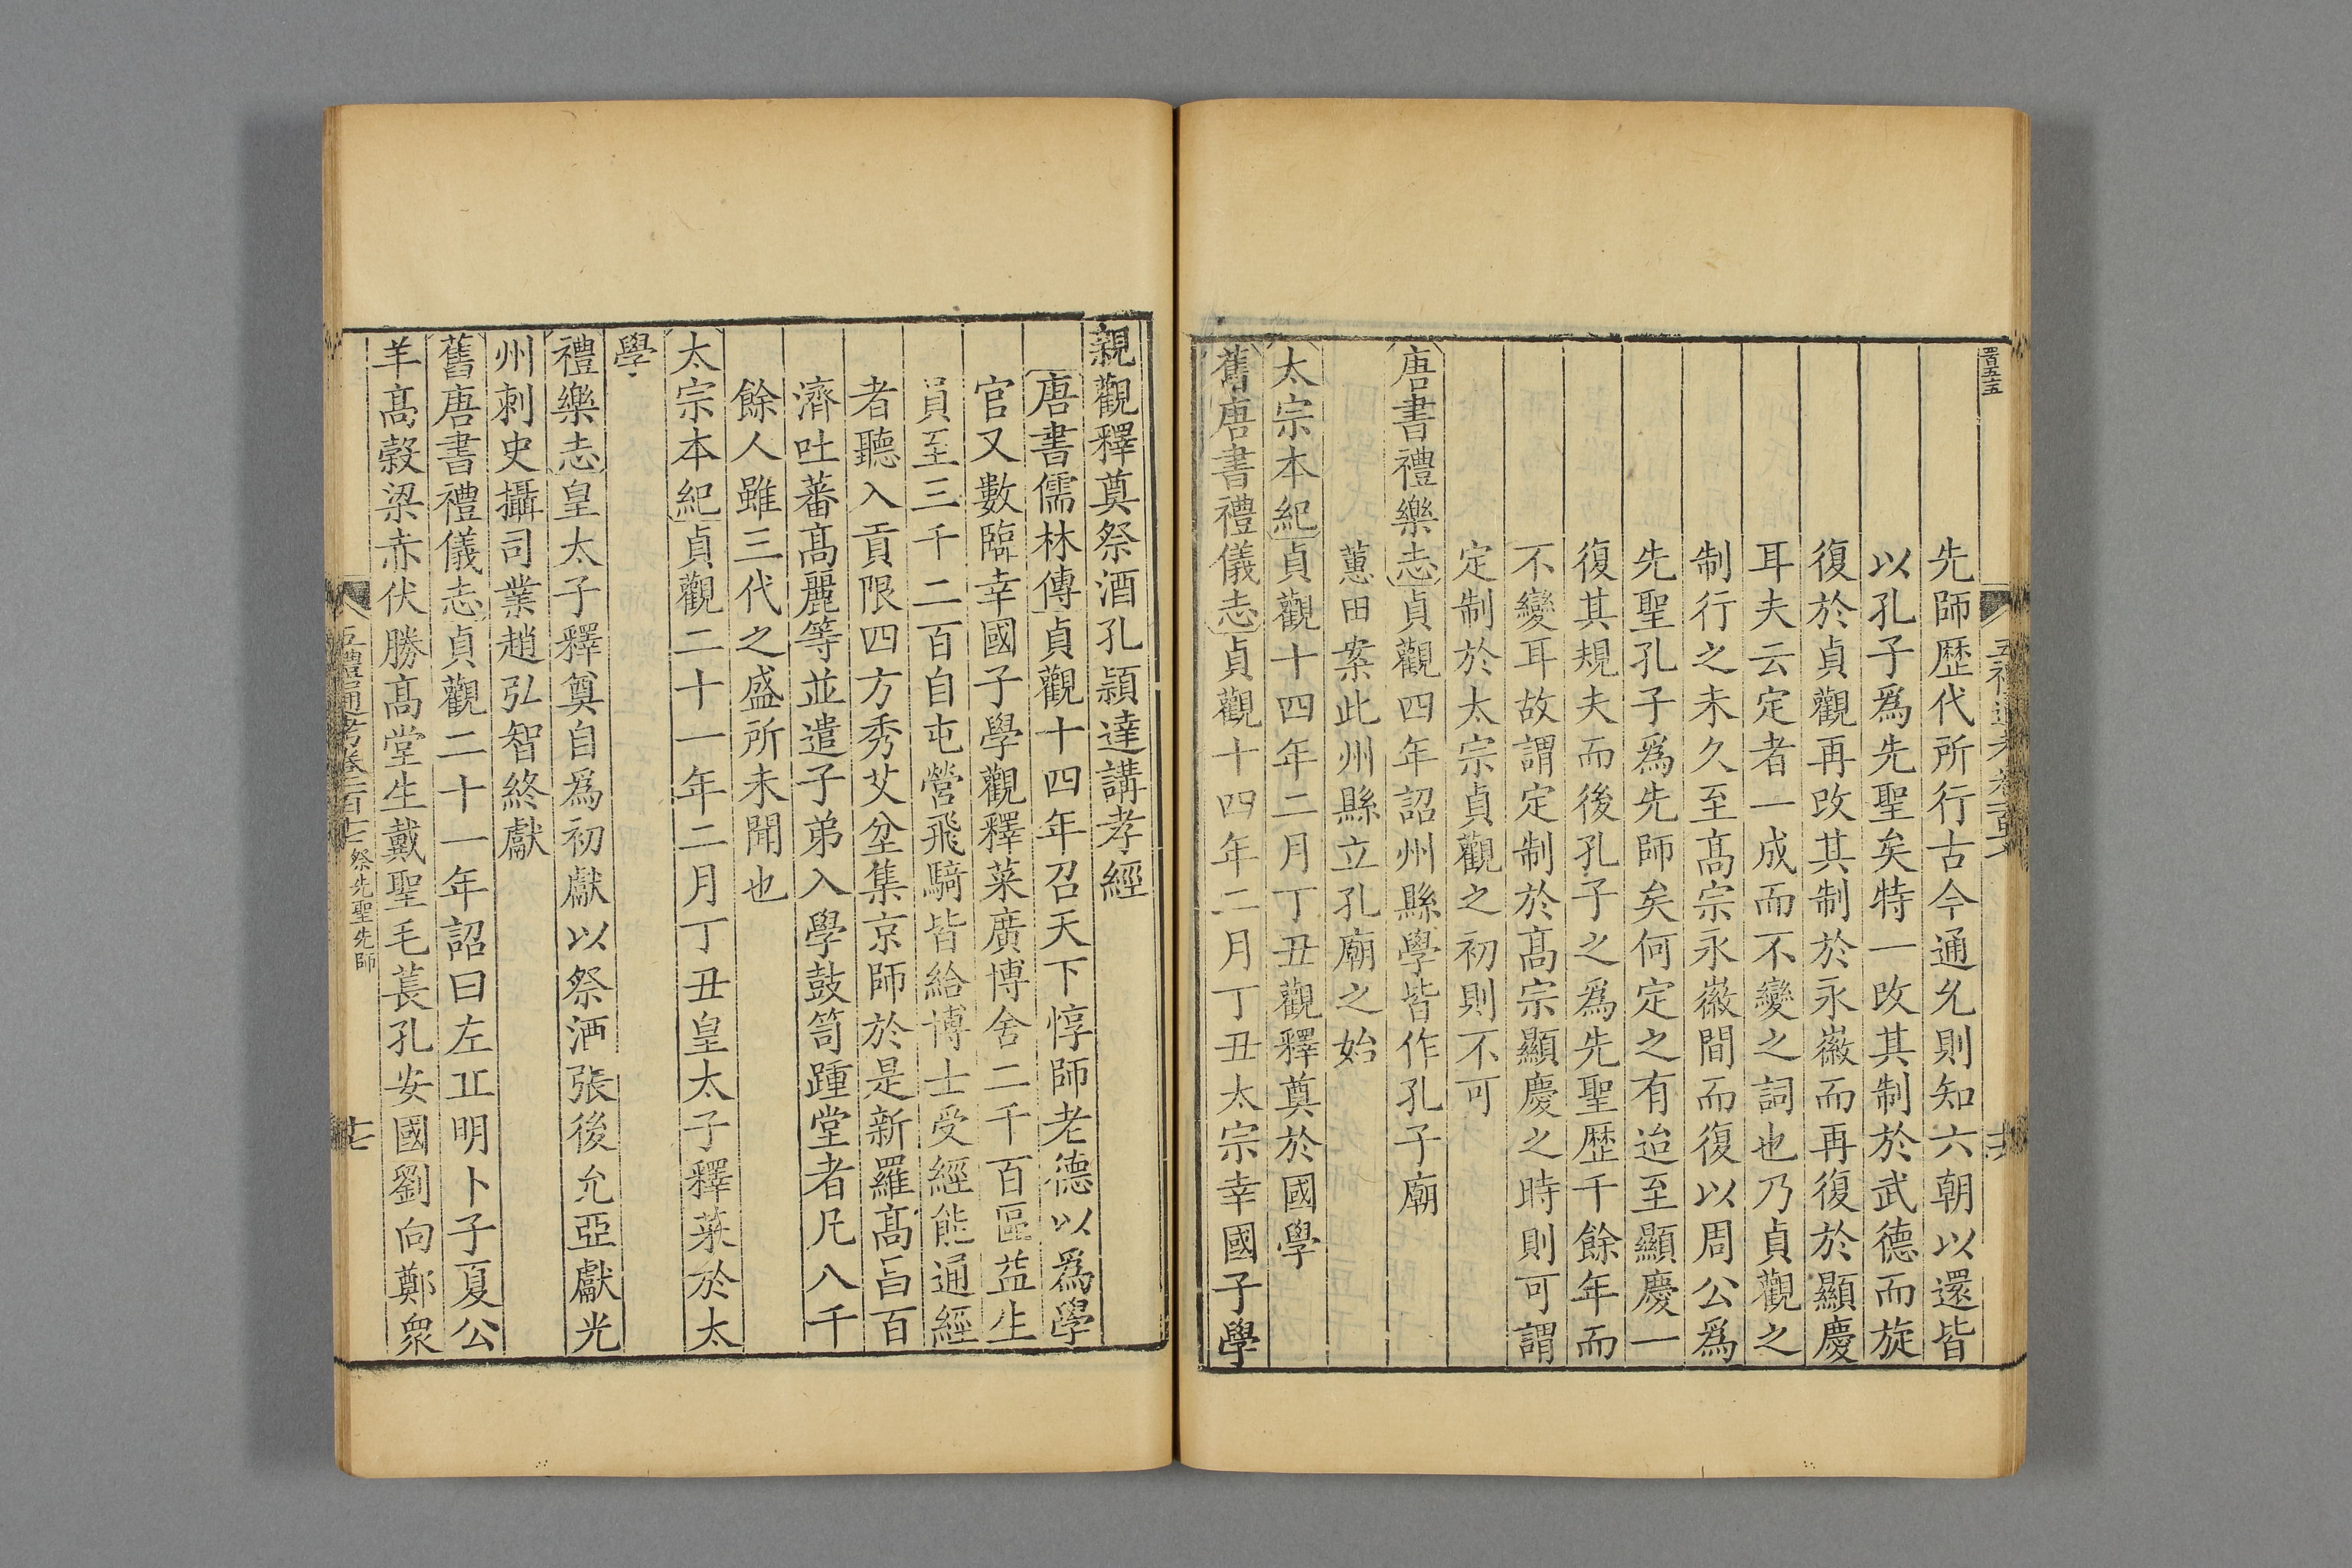 先師歴代所行古今通允則知六朝以還皆
以孔子爲先聖矣特一改其制於武德而旋
復於貞觀再改其制於永徽而再復於顯慶
耳夫云定者一成而不變之詞也乃貞觀之
制行之未久至髙宗永徽間而復以周公爲
先聖孔子爲先師矣何定之有迨至顯慶一
復其規夫而後孔子之爲先聖歴千餘年而
不變耳故謂定制於髙宗顯慶之時則可謂
定制於太宗貞觀之初則不可
唐書禮樂志貞觀四年詔州縣學皆作孔子廟
蕙田案此州縣立孔廟之始
太宗本紀貞觀十四年二月丁丑觀釋奠於國學
舊唐書禮儀志貞觀十四年二月丁丑太宗幸國子學
親觀釋奠祭酒孔頴達講孝經
唐書儒林傳貞觀十四年召天下惇師老德以爲學
官又數臨幸國子學觀釋菜廣博舍二千百區益生
員至三千二百自屯營飛騎皆給博士受經能通經
者聽入貢限四方秀艾坌集京師於是新羅髙昌百
濟吐蕃髙麗等並遣子弟入學鼓笥踵堂者凡八千
餘人雖三代之盛所未聞也
太宗本紀貞觀二十一年二月丁丑皇太子釋菜於太
學
禮樂志皇太子釋奠自爲初獻以祭酒張後允亞獻光
州刺史攝司業趙弘智終獻
舊唐書禮儀志貞觀二十一年詔曰左丘明卜子夏公
羊髙榖梁赤伏勝髙堂生戴聖毛萇孔安國劉向鄭衆
五禮通考卷一百十七 祭先聖先師
十七